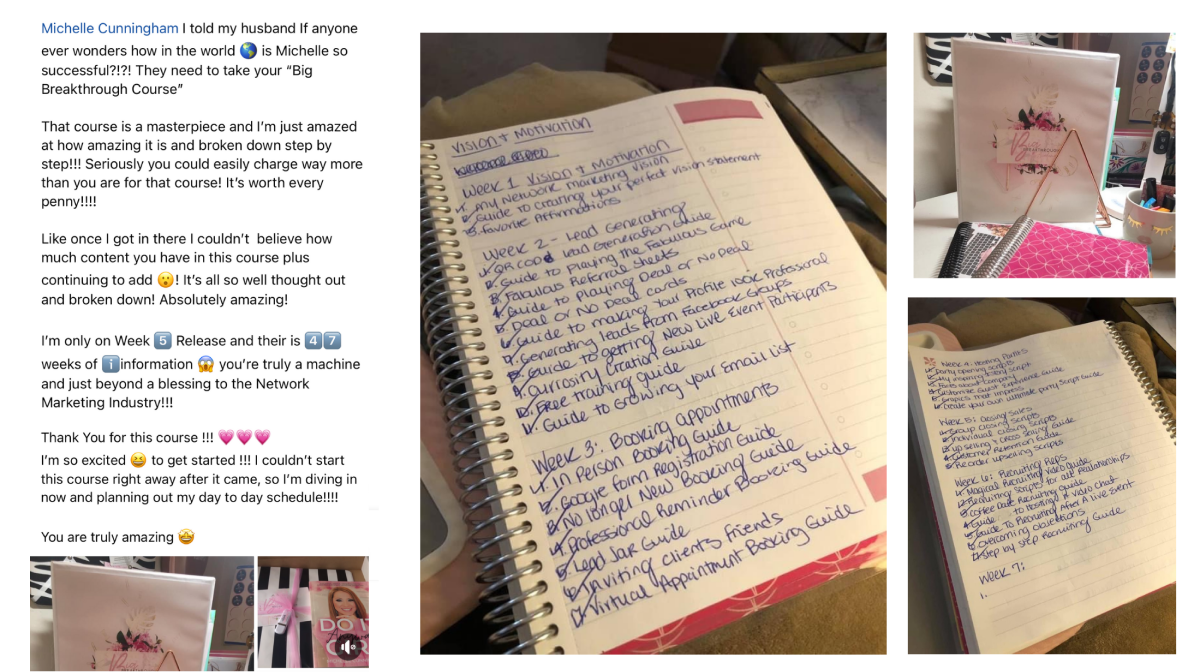 Michelle Cunningham I told my husband If anyone
ever wonders how in the world 🌎 is Michelle so
successful?!?! They need to take your “Big
Breakthrough Course”
That course is a masterpiece and I’m just amazed
at how amazing it is and broken down step by
step!!! Seriously you could easily charge way more
than you are for that course! It’s worth every
penny!!!!
Like once I got in there I couldn’t believe how
much content you have in this course plus
continuing to add 😮! It’s all so well thought out
and broken down! Absolutely amazing!
I’m only on Week 5️⃣ Release and their is 4️⃣7️⃣
weeks of ℹ️information 😱 you’re truly a machine
and just beyond a blessing to the Network
Marketing Industry!!!
Thank You for this course !!! 💗💗💗
I’m so excited 😆 to get started !!! I couldn’t start
this course right away after it came, so I’m diving in
now and planning out my day to day schedule!!!!
You are truly amazing 🤩
DO IT
Vision + Motivation
Week 1 Vision + Motivation
1. My Network marketing vision
2. Guide to creating your perfect vision statement
3. Favorite Affirmations
Week 2 - Lead Generating
1. QR code Lead Generation Guide
2. Guide to playing the Fabulous Game
3. Fabulous Referral Sheets
4. Guide to playing Deal or No Deal
5. Deal or No Deal cards
6. Guide to making Your Profile 100% Professional
7. Generating leads from Facebook Groups
8. Guide to getting New Live Event Participants
9. Currosity Creation Guide
10. Free training guide
11. Guide to Growing your Email list
Week 3: Booking appointments
1. In Person Booking Guide
2. Google form Registration Guide
3. No longer New Booking Guide
4. Professional Reminder Booking Guide
5. Lead Jar Guide
6. Inviting clients friends
7. Virtual Appointment Booking Guide
Week 4: Hosting Parties
1. Party opening scripts
2. My inspiring story script
3. Facts about company
4. Customize Guest Experience Guide
5. Graphics that impress
6. Create your own ultimate party Script Guide
Week 5: Closing Sales
1. Group Closing Scripts
2. Individual Closing Scripts
3. Up selling + Cross Selling Guide
4. Customer Retention Guide
5. Reorder upselling scripts
Week 6: Recruiting Reps
1. Magical Recruiting Video guide
2. Recruiting Scripts for all Relationships
3. Coffee Date Recruiting Guide
4. Guide to Hosting A video chat
5. Guide To Recruiting After A live Event
6. Overcoming Objections
7. Step by step Recruiting Guide
Week 7:
1.